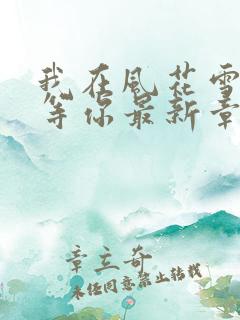 我在风花雪
等你最新章
章立奇
未经同意禁止转载